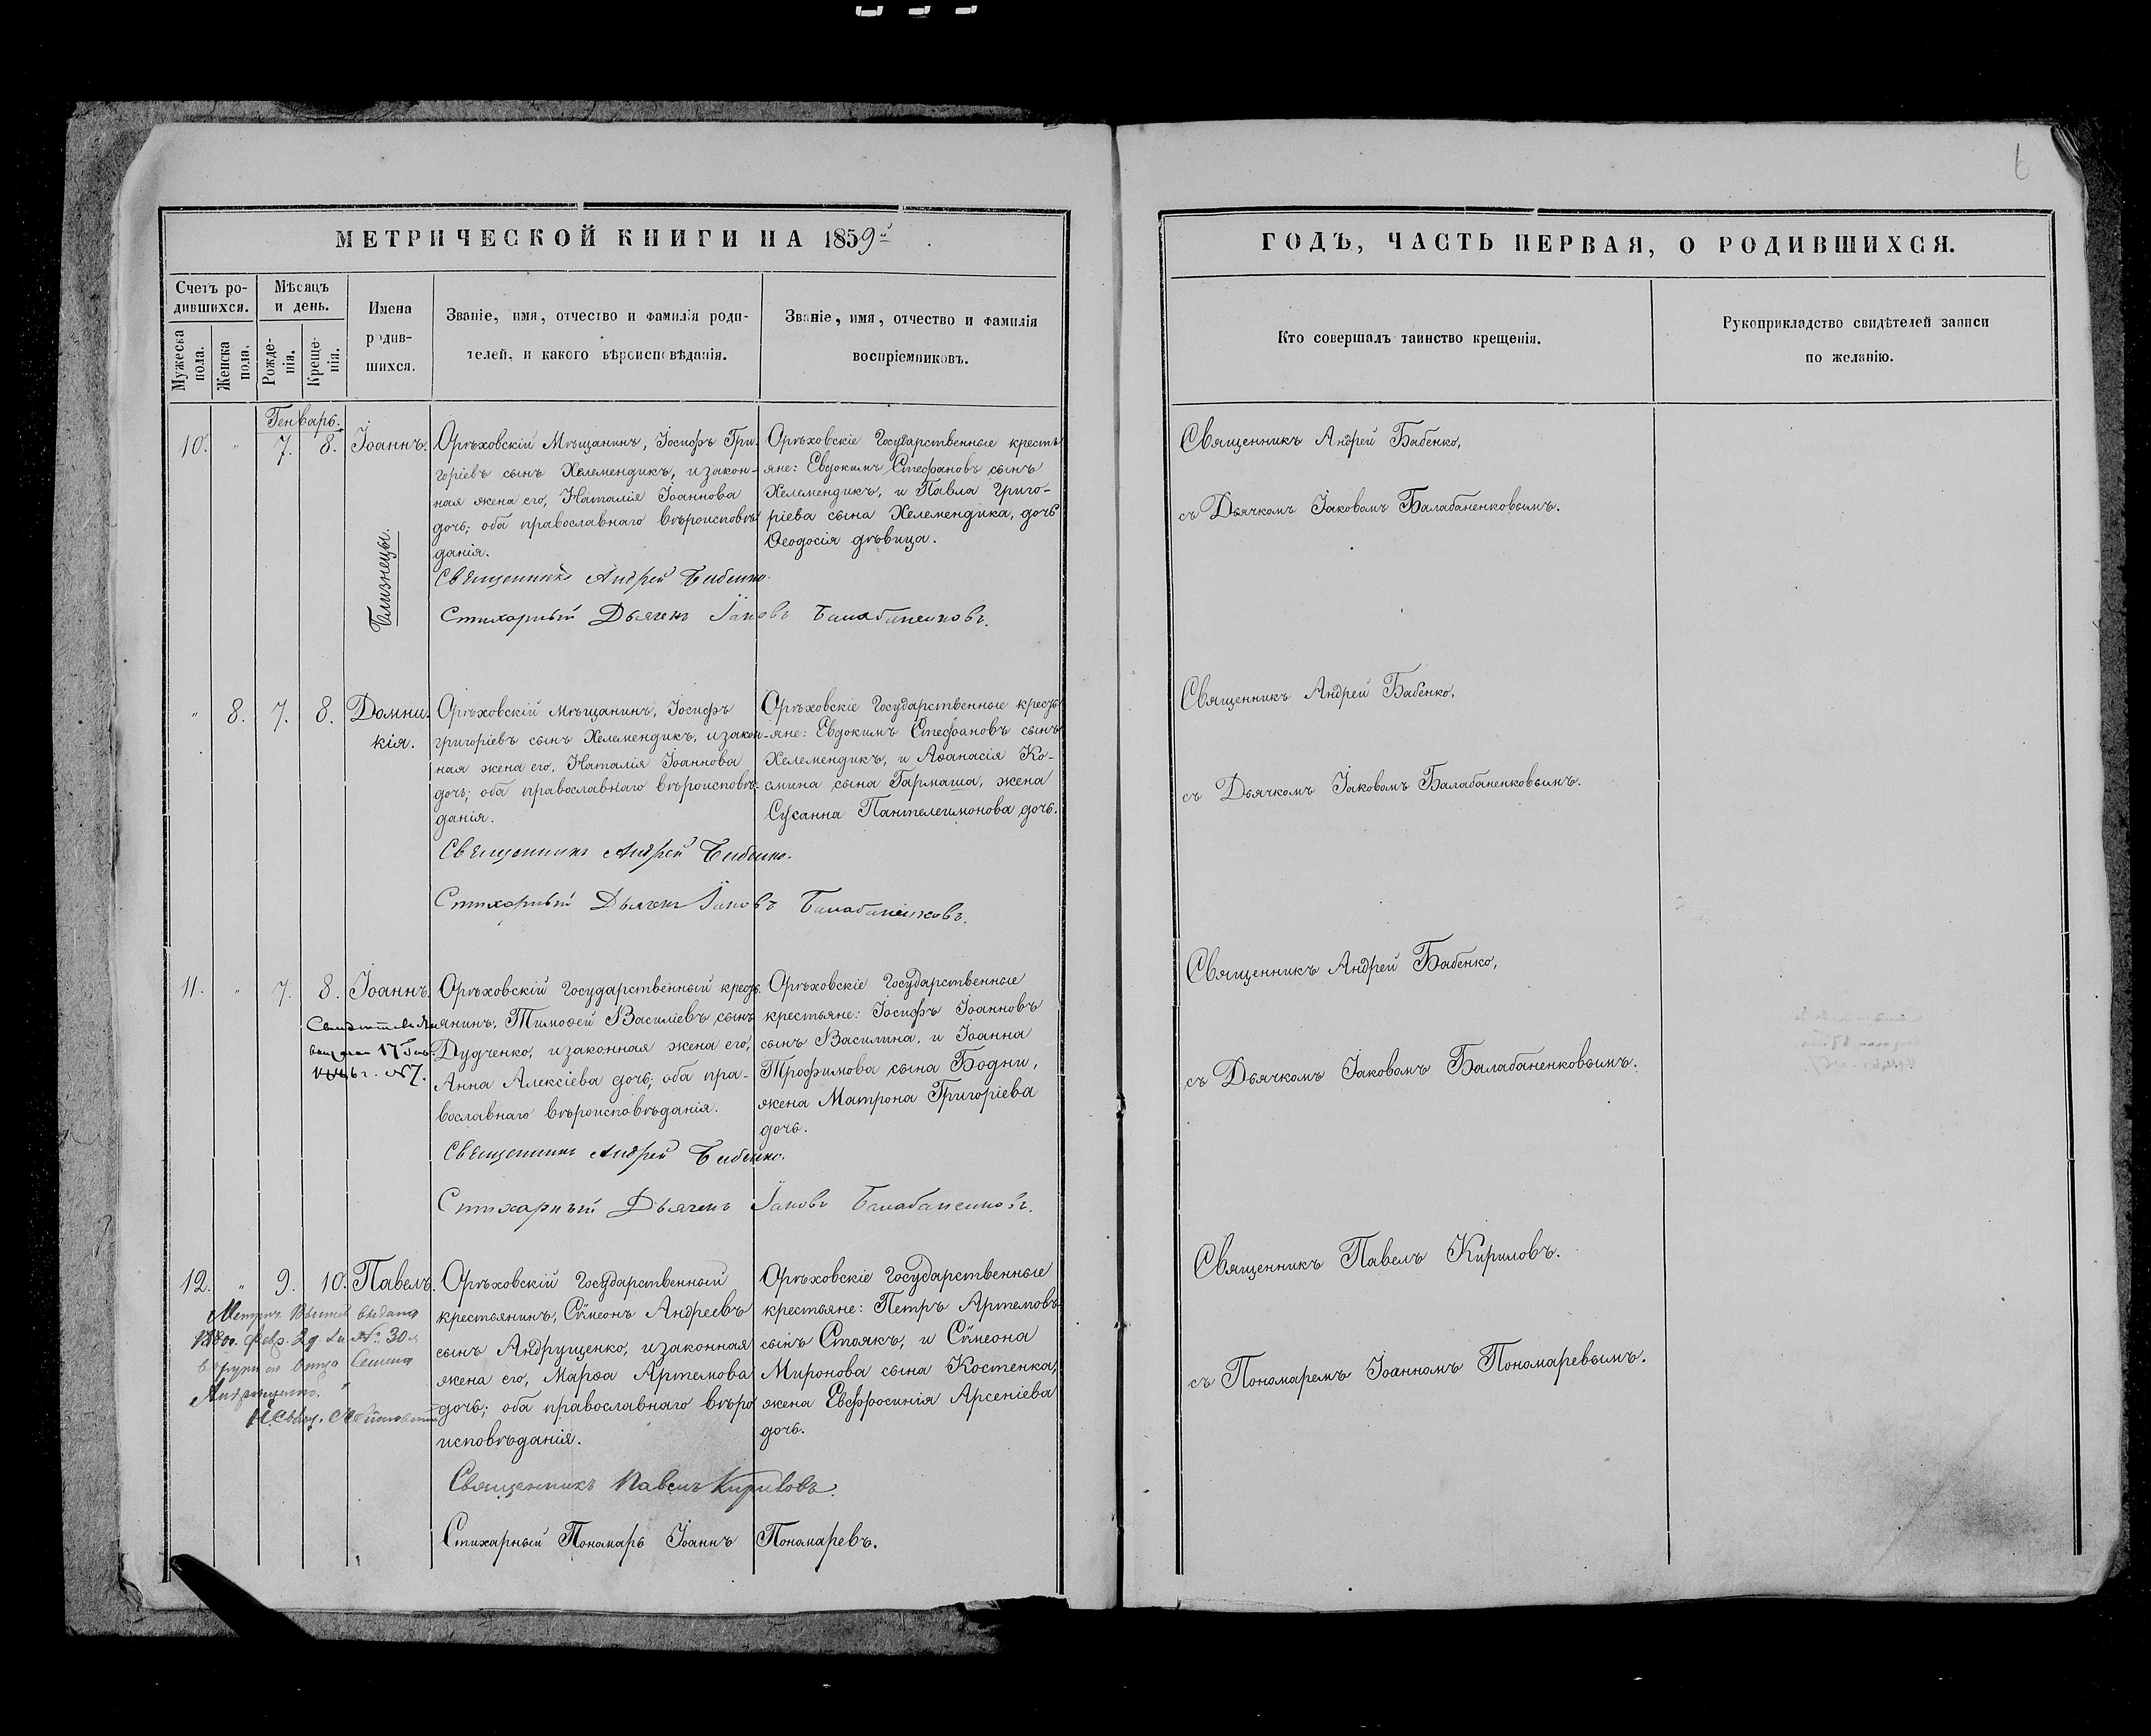 6
МЕТРИЧЕСКОЙ КНИГИ НА 1859й
Счетъ ро-
дившихся.
Мужеска
пола.
Женска
пола.
Мѣсяцъ
и день.
Рожде-
нія.
Креще-
нія.
Имена
родив-
шихся.
Званіе, имя, отчество и фамилія роди-
телей, и какого вѣроисповѣданія.
Званіе, имя, отчество и фамилія
воспріемниковъ.
ГОДЪ, ЧАСТЬ ПЕРВАЯ, О РОДИВШИХСЯ.
Кто совершалъ таинство крещенія.
Рукоприкладство свидѣтелей записи
по желанію.
Генварь.
10. " 7. 8. Іоаннъ.
Близнецы.
Орѣховскій Мѣщанинъ, Іосифъ Гри-
горіевъ сынъ Хелемендикъ, и закон-
ная жена его, Наталія Іоаннова
дочь; оба православнаго вѣроисповѣ-
данія.
Орѣховскіе Государственные кресть
яне: Евдокимъ Стефановъ сынъ
Хелемендикъ, и Павла Григо-
ріева сына Хелемендика, дочь
Ѳеодосія дѣвица.
Священникъ Андрей Бабенко.
Стихарный Дьячекъ Іаковъ Балабаненковъ.
Священникъ Андрей Бабенко,
съ Дьячкомъ Іаковомъ Балабаненковымъ.
" 8. 7. 8. Домни-
кія.
Орѣховскій Мѣщанинъ, Іосифъ
григоріевъ сынъ Хелемендикъ, и закон-
ная жена его, Наталія Іоаннова
дочь; оба православнаго вѣроисповѣ-
данія.
Орѣховскіе Государственные кресть
яне: Евдокимъ Стефановъ сынъ
Хелемендикъ, и Аѳанасія Ко-
смина сына Гармаша, жена
Сусанна Пантелеимонова дочь.
Священникъ Андрей Бабенко.
Стихарный Дьячекъ Іаковъ Балабаненковъ.
Священникъ Андрей Бабенко,
съ Дьячкомъ Іаковомъ Балабаненковымъ.
11. " 7. 8. Іоаннъ.
17
№ 7.
Орѣховскій Государственный кресть
янинъ, Тимоѳей Василіевъ сынъ
Дудченко, и законная жена его,
Анна Алексіева дочь; оба пра-
вославнаго вѣроисповѣданія.
Орѣховскіе Государственные
крестьяне: Іосифъ Іоанновъ
сынъ Василина, и Іоанна
Трофимова сына Бодни,
жена Матрона Григоріева
дочь.
Священникъ Андрей Бабенко.
Стихарный Дьячекъ Іаковъ Балабаненковъ.
Священникъ Андрей Бабенко,
съ Дьячкомъ Іаковомъ Балабаненковымъ.
12. " 9. 10. Павелъ.
выдана
№ 30
Семена
Орѣховскій Государственный
крестьянинъ, Сѵмеонъ Андреевъ
сынъ Андрущенко, и законная
жена его, Марѳа Артемова
дочь; оба православнаго вѣро
исповѣданія.
Орѣховскіе Государственные
крестьяне: Петръ Артемовъ
сынъ Стоякъ, и Сѵмеона
Миронова сына Костенка,
жена Евфросинія Арсеніева
дочь.
Священникъ Павелъ Кириловъ.
Стихарный Пономарь Іоаннъ Пономаревъ.
Священникъ Павелъ Кириловъ.
съ Пономаремъ Іоанномъ Пономаревымъ.